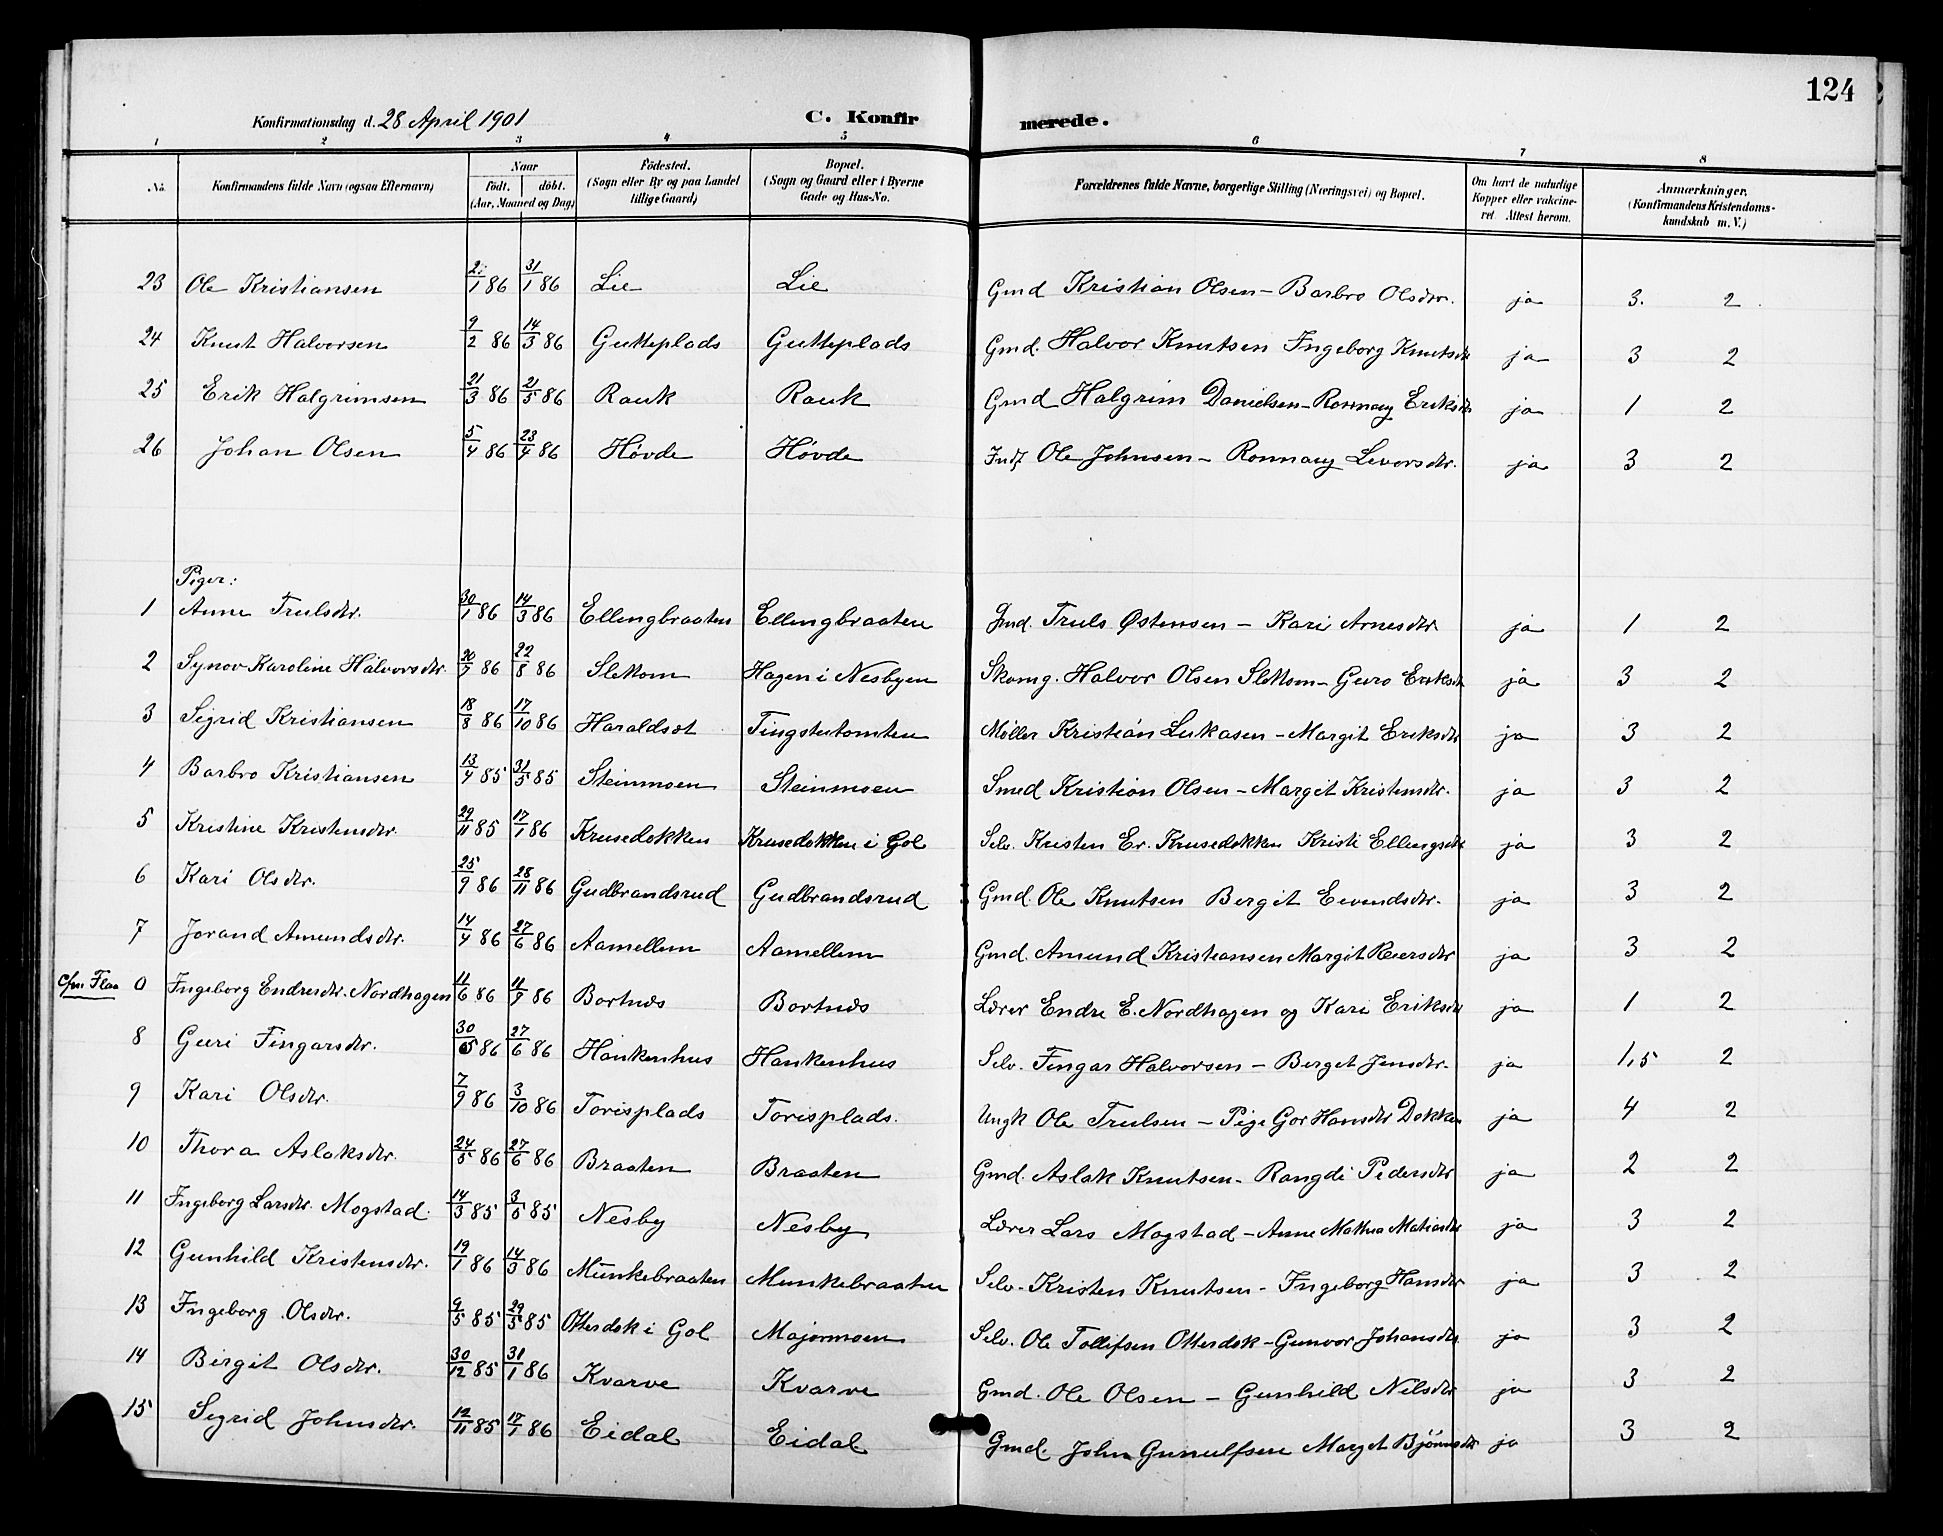 124
Konfirmationsdag d. 28 April 1901 C. Konfirmerede.
1 2 3 4 5 6 7 8
No. Konfirmandens fulde Navn (ogsaa Efternavn) Naar født. døbt. (Aar, Maaned og Dag) Fødested. (Sogn eller By og paa Landet tillige Gaard) Bopæl. (Sogn og Gaard eller i Byerne Gade og Hus-No. Forældrenes fulde Navne, borgerlige Stilling (Næringsvei) og Bopæl. Om havt de naturlige Kopper eller vakcineret. Attest herom. Anmærkninger. (Konfirmandens Kristendomskundskab m. V.)
23 Ole Kristiansen /1 86 31/1 86 Lie Lie Gmd Kristian Olsen - Barbro Olsdtr. ja 3. 2
24 Knut Halvorsen 9/2 86 14/3 86 Gutteplads Gutteplads Gmd. Halvor Knutsen Ingeborg Knutsdtr ja 3 2
25 Erik Halgrimsen 21/3 86 21/5 86 Rauk Rauk Gmd Halgrim Danielsen - Ronnaug Eriksdtr ja 1 2
26 Johan Olsen 5/4 86 23/4 86 Høvde Høvde Indf Ole Johnsen - Ronnaug Levorsdtr. ja 3 2
Piger:
1 Anne Trulsdtr. 30/1 86 14/3 86 Ellingbraaten Ellingbraaten Gmd. Truls Østensen - Kari Arnesdtr ja 1 2
2 Synov Karoline Halvorsdtr. 20/7 86 22/8 86 Slettom Hagen i Nesbyen Skomg. Halvor Olsen Slettom - Guro Eriksdtr ja 3 2
3 Sigrid Kristiansen 18/8 86 17/10 86 Haraldset Tingstutomten Møller Kristian Lukasen - Margit Eriksdtr ja 3 2
4 Barbro Kristiansen 13/4 85 31/5 85 Steinmoen Steinmoen Smed Kristian Olsen - Margit Kristensdtr. ja 3 2
5 Kristine Kristensdtr. 29/11 85 17/1 86 Krusedokken Krusedokken i Gol Selv. Kristen Er. Krusedokken Kristi Ellingsdtr ja 3 2
6 Kari Olsdtr. 25/9 86 28/11 86 Gudbrandsrud Gudbrandsrud Gmd. Ole Knutsen Bergit Eivendsdtr. ja 3 2
7 Jorand Amundsdtr. 14/4 86 27/6 86 Aamellem Aamellem Gmd. Amund Kristiansen Margit Reiersdtr ja 3 2
Flaa 0 Ingeborg Endresdtr. Nordhagen 11/6 86 11/7 86 Bortnes Bortnes Lærer Endre E. Nordhagen og Kari Eriksdtr ja 1 2
8 Guri Fingarsdtr. 30/5 86 27/6 86 Hankenhus Hankenhus Selv. Fingar Halvorsen - Berget Jensdtr. ja 1,5 2
9 Kari Olsdtr. 7/9 86 3/10 86 Torisplads Torisplads. Ungk Ole Trulsen - Pige Gor Hansdtr Dokken ja 4 2
10 Thora Aslaksdtr. 24/5 86 27/6 86 Braaten Braaten Gmd. Aslak Knutsen - Rangdi Pedersdtr ja 2 2
11 Ingeborg Larsdtr. Mogstad. 14/3 85 3/5 85 Nesby Nesby Lærer Lars Mogstad - Anne Mathea Matiasdtr ja 3 2
12 Gunhild Kristensdtr. 19/1 86 14/3 86 Munkebraaten Munkebraaten Selv. Kristen Knutsen - Ingeborg Hansdtr ja 3 2
13 Ingeborg Olsdtr. 9/5 85 29/5 85 Otterdok i Gol Majormoen Selv. Ole Tollefsen Otterdok - Gunvor Johansdtr ja 3 2
14 Birgit Olsdtr. 30/12 85 31/1 86 Kvarve Kvarve Gmd. Ole Olsen - Gunhild Nilsdtr ja 3 2
15 Sigrid Johnsdtr. 12/11 85 17/1 86 Eidal Eidal Gmd. John Gunulfsen Marget Bjørnsdtr ja 3 2